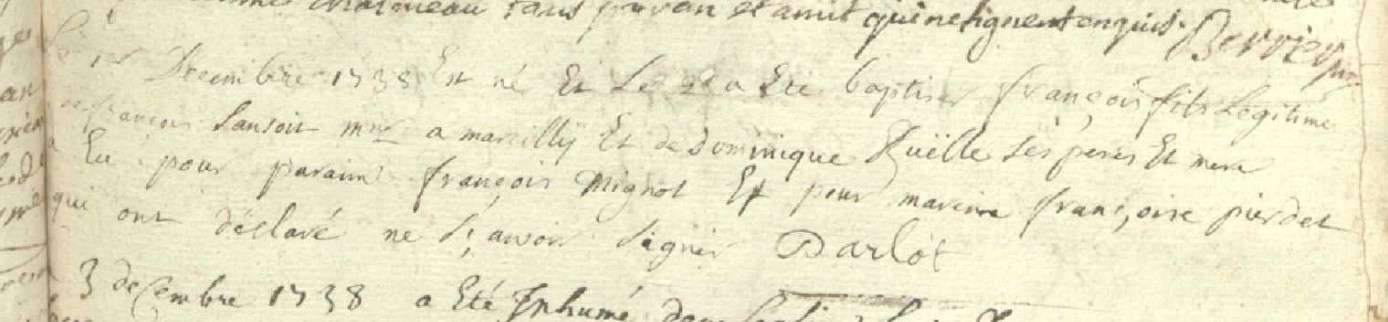 parran et amit qui ne signent enquis. Berrier
Le 1er Decembre 1738 Est né Et Le a Eté baptiser françois fils Legitime
de françois Sansoit mre a marcilly Et de Dominique Ruëlle ses peres Et mere
a Eu pour parain françois Mignot Et pour mareine françoise pierdet
qui ont déclaré ne sçavoir signer Darlot
3 decembre 1738 a Eté Inhumé dans